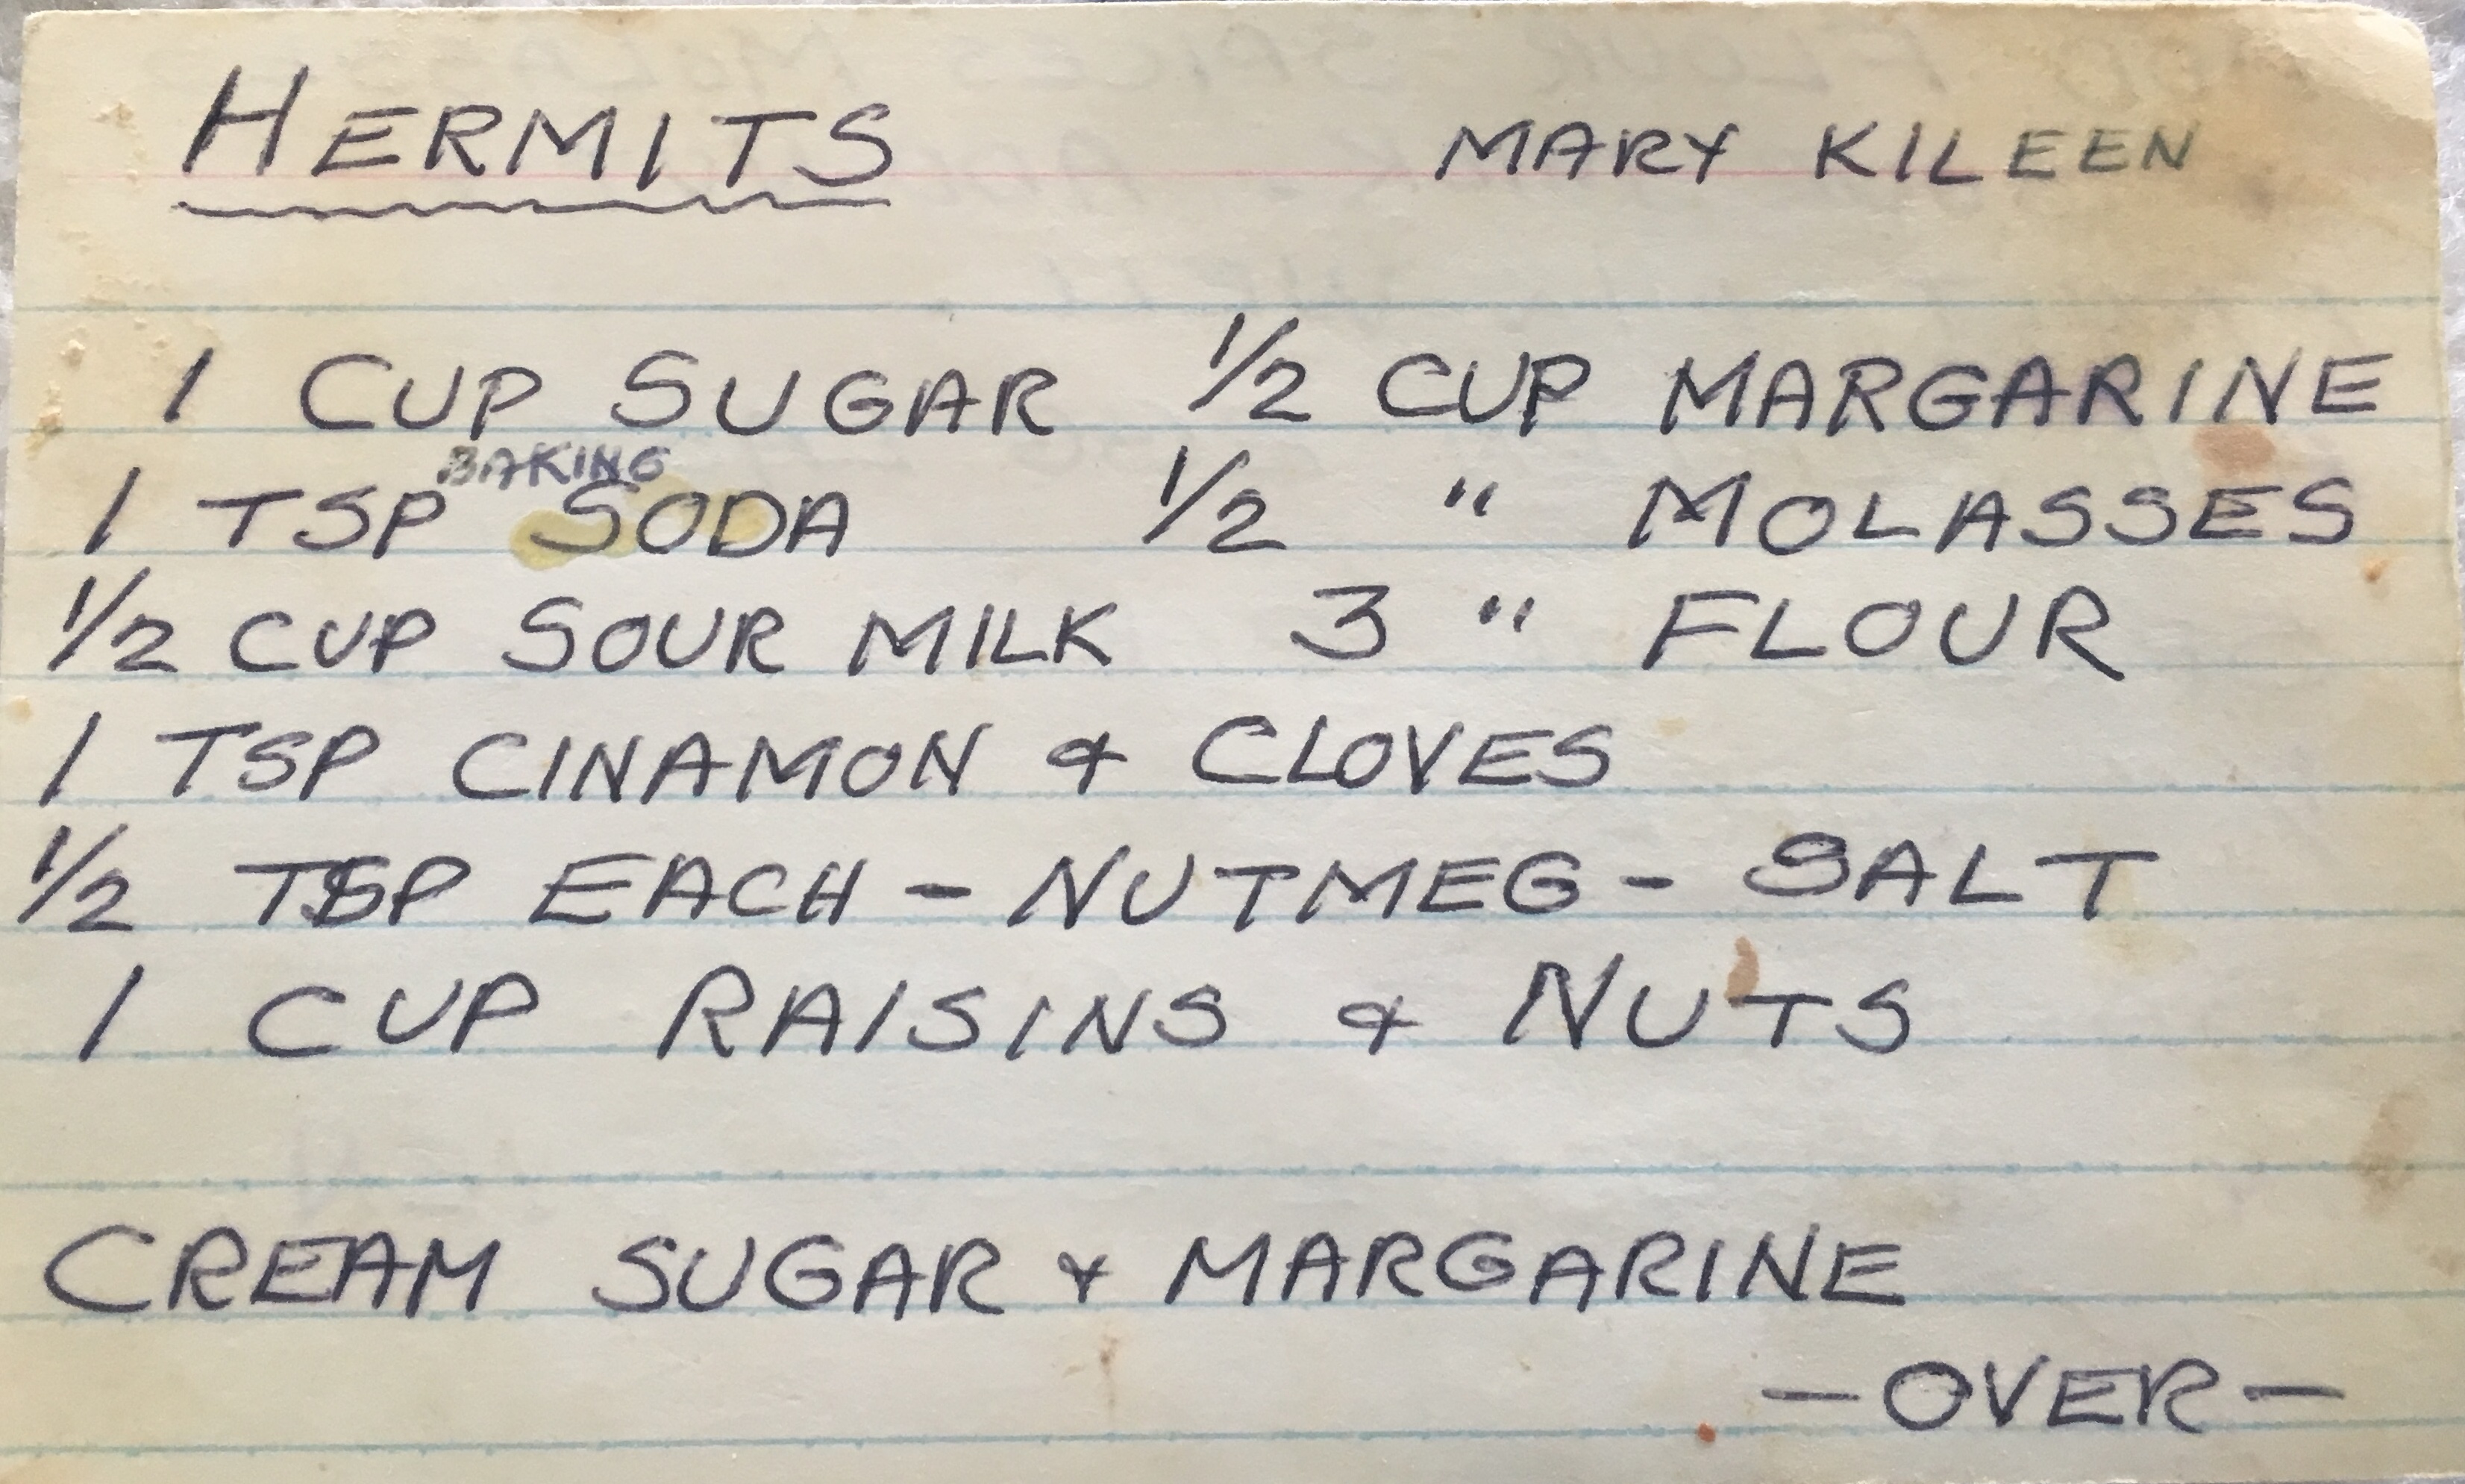 HERMITS MARY KILEEN
1 CUP SUGAR 1/2 CUP MARGARINE
1 TSP BAKING SODA 1/2 " MOLASSES
1/2 CUP SOUR MILK 3 " FLOUR
1 TSP CINAMON & CLOVES
1/2 TSP EACH - NUTMEG - SALT
1 CUP RAISINS & NUTS
CREAM SUGAR & MARGARINE
- OVER -